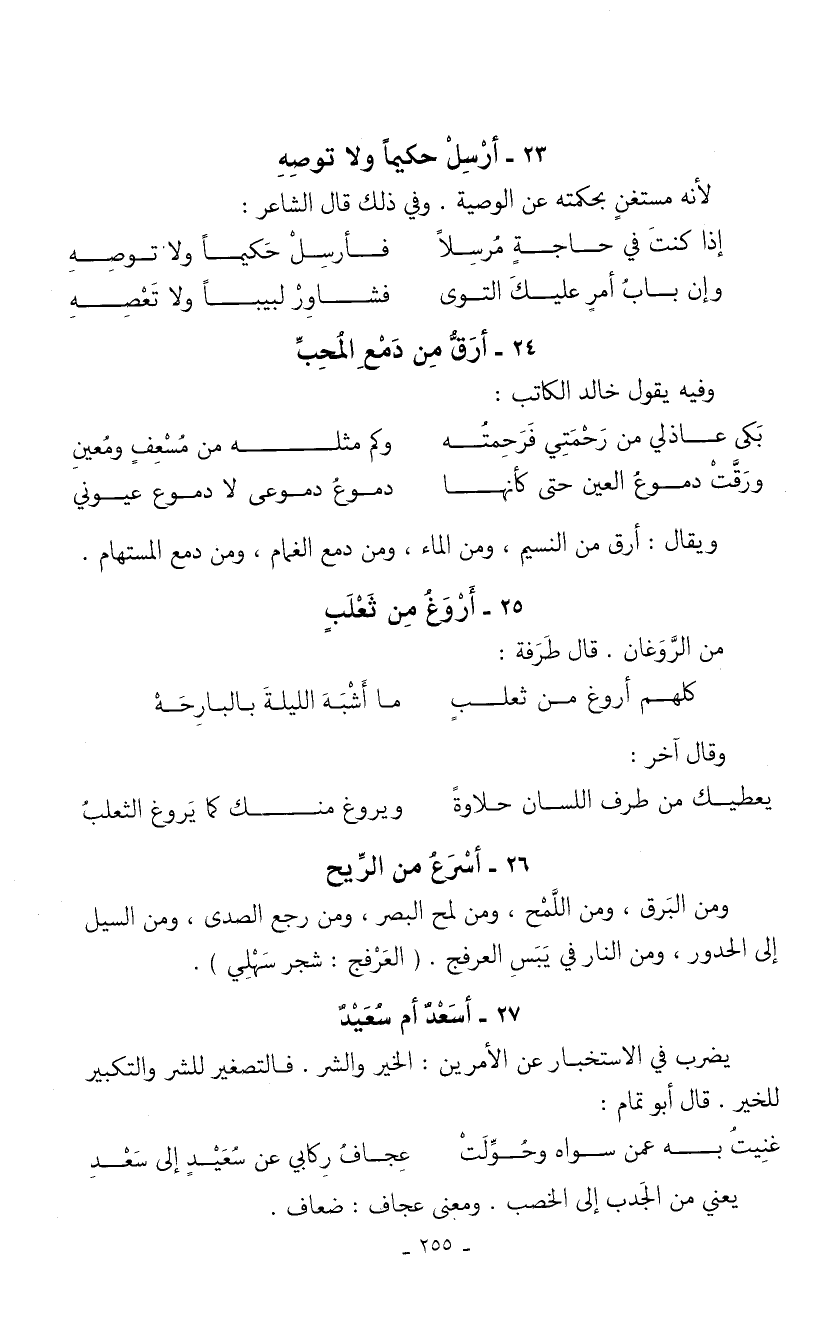 ٢٣ ـ أرْسِلْ حكيماً ولا توصِهِ
لأنه مستغنٍ بحكمته عن الوصية . وفي ذلك قال الشاعر :
إذا كنتَ في حـاجـةٍ مُرسِلاً فـأرسِـلْ حَكيمـاً ولا تـوصِـهِ
وإن بـابُ أمرٍ عليـكَ التـوى فشـاورْ لبيبـاً ولا تَعْصِـهِ
٢٤ ـ أرَقُّ مِن دَمْعِ المُحِبِّ
وفيه يقول خالد الكاتب :
بَكى عـاذلي من رَحْمَتي فَرَحِمتُـه وكم مثلـه من مُسْعِفٍ ومُعينِ
ورَقَّتْ دمـوعُ العين حتى كأنهـا دمـوعُ دمـوعى لا دمـوع عيـوني
ويقال : أرق من النسيم ، ومن الماء ، ومن دمع الغمام ، ومن دمع المستهام .
٢٥ ـ أَرْوَغُ مِن ثَعْلَبٍ
من الرَّوَغان . قال طَرَفة :
كلهـم أروغ مـن ثعلـبٍ ما أَشْبَهَ الليلةَ بـالبـارِحَـهْ
وقال آخر :
يعطيـك من طرف اللسـان حـلاوةً ويـروغ منـك كما يَروغ الثعلبُ
٢٦ ـ أسْرَعُ من الرِّيح
ومن البَرق ، ومن اللَّمْح ، ومن لمح البصر ، ومن رجع الصدى ، ومن السيل
إلى الحدور ، ومن النار في يَبَسِ العرفج . ( العَرْفج : شجر سَهْلي ) .
٢٧ ـ أسَعْدٌ أم سُعَيْدٌ
يضرب في الاستخبـار عن الأمرين : الخير والشر . فـالتصغير للشر والتكبير
للخير . قال أبو تمام :
غَنِيتُ بـه عمن سـواه وحُـوِّلَتْ عجـافُ رِكابي عن سُعَيْـدٍ إلى سَعْـدِ
يعني من الجَدب إلى الخصب . ومعنى عجاف : ضعاف .
ـ ٢٥٥ ـ